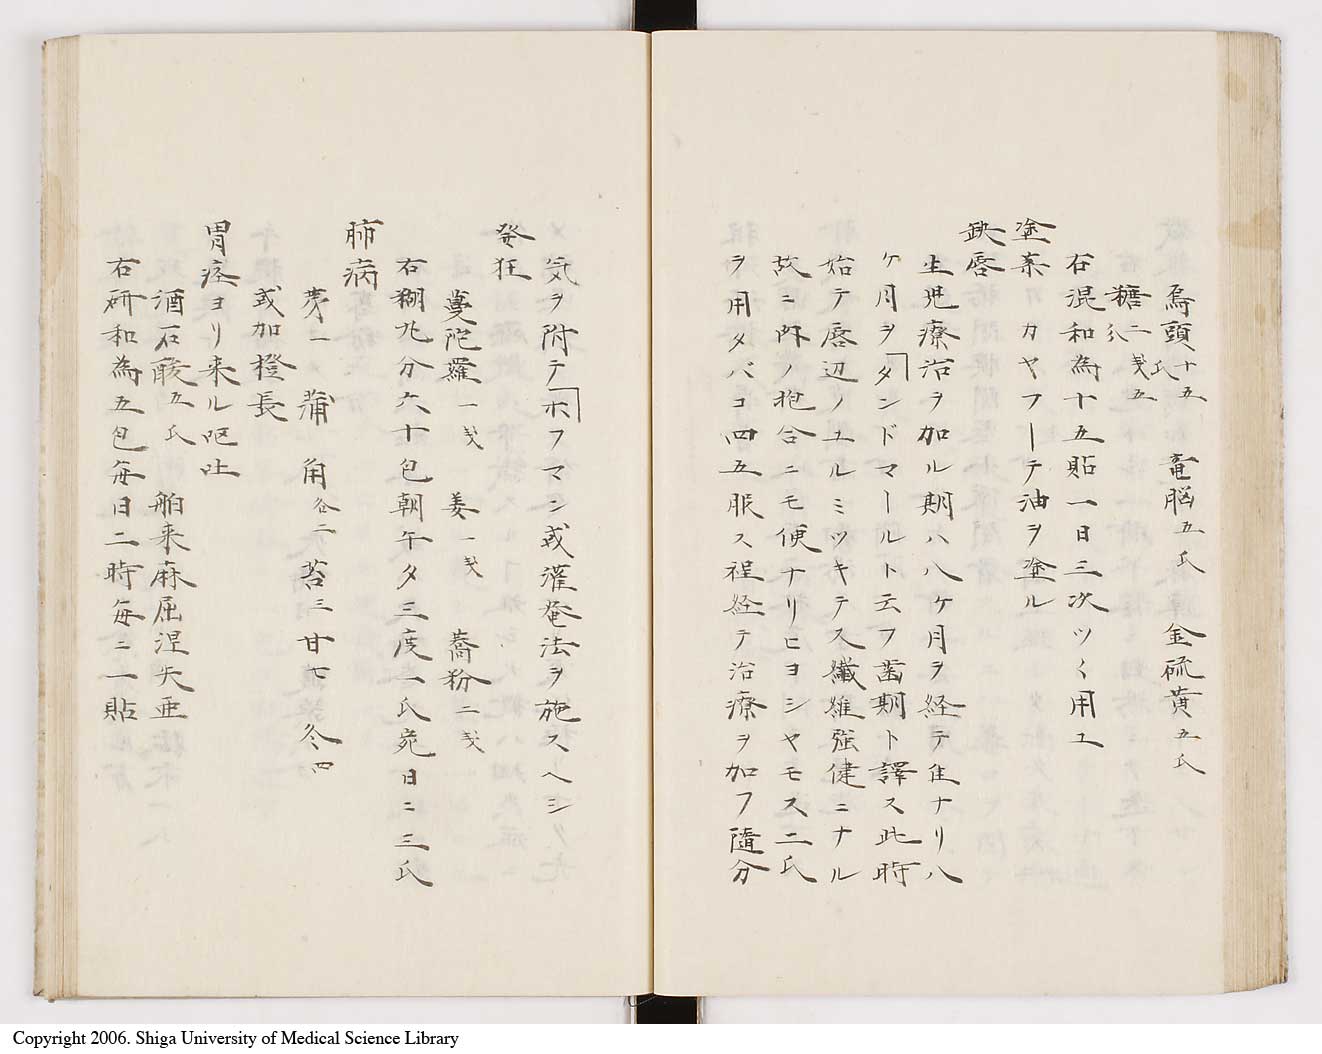 烏頭十五氏 竜脳五氏 金硫黄五氏
糖二戔五分
右混和為十五貼一日三次ツヽ用ユ
塗薬カヤフーテ油ヲ塗ル
缺唇
生児療治ヲ加ル期ハ八ケ月ヲ経テ佳ナリ八
ケ月ヲ「タンドマールト云フ歯期ト譯ス此時
始テ唇辺ノユルミツキテス纎維強健ニナル
故ニ肉ノ抱合ニモ便ナリヒヨシヤモス二氏
ヲ用タバコ四五服ス程経テ治療ヲ加フ隨分
気ヲ附テ「ホフマン或灌菴法ヲ施スヘシ
発狂
蔓陀羅一戔 姜一戔 蕎粉二戔
右糊丸分六十包朝午夕三度一氏宛日ニ三氏
肺病
莠一 蒲 角各二 莟三 甘七 冬四
或加橙長
胃痃ヨリ来ル呕吐
酒石酸五氏 舶来麻屈涅矢亜
右研和為五包毎日二時毎ニ一貼
Copyright 2006. Shiga University of Medical Science Library